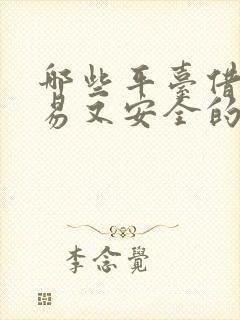 哪些平臺借
易又安全的
李念覺